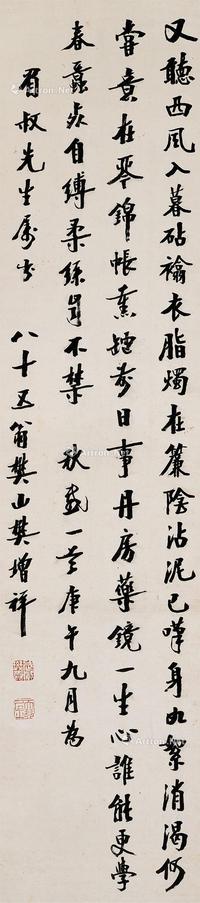 又聽西風入暮砧褕衣脂燭在簾陰沾泥已嘆身如絮消渴何
嘗意在琴錦帳熏爐前日事丹房藥鏡一生心誰能更學
春蠶死自縛柔絲不禁 秋感一首庚午九月為
眉叔先生屬書 八十五翁樊山樊增祥